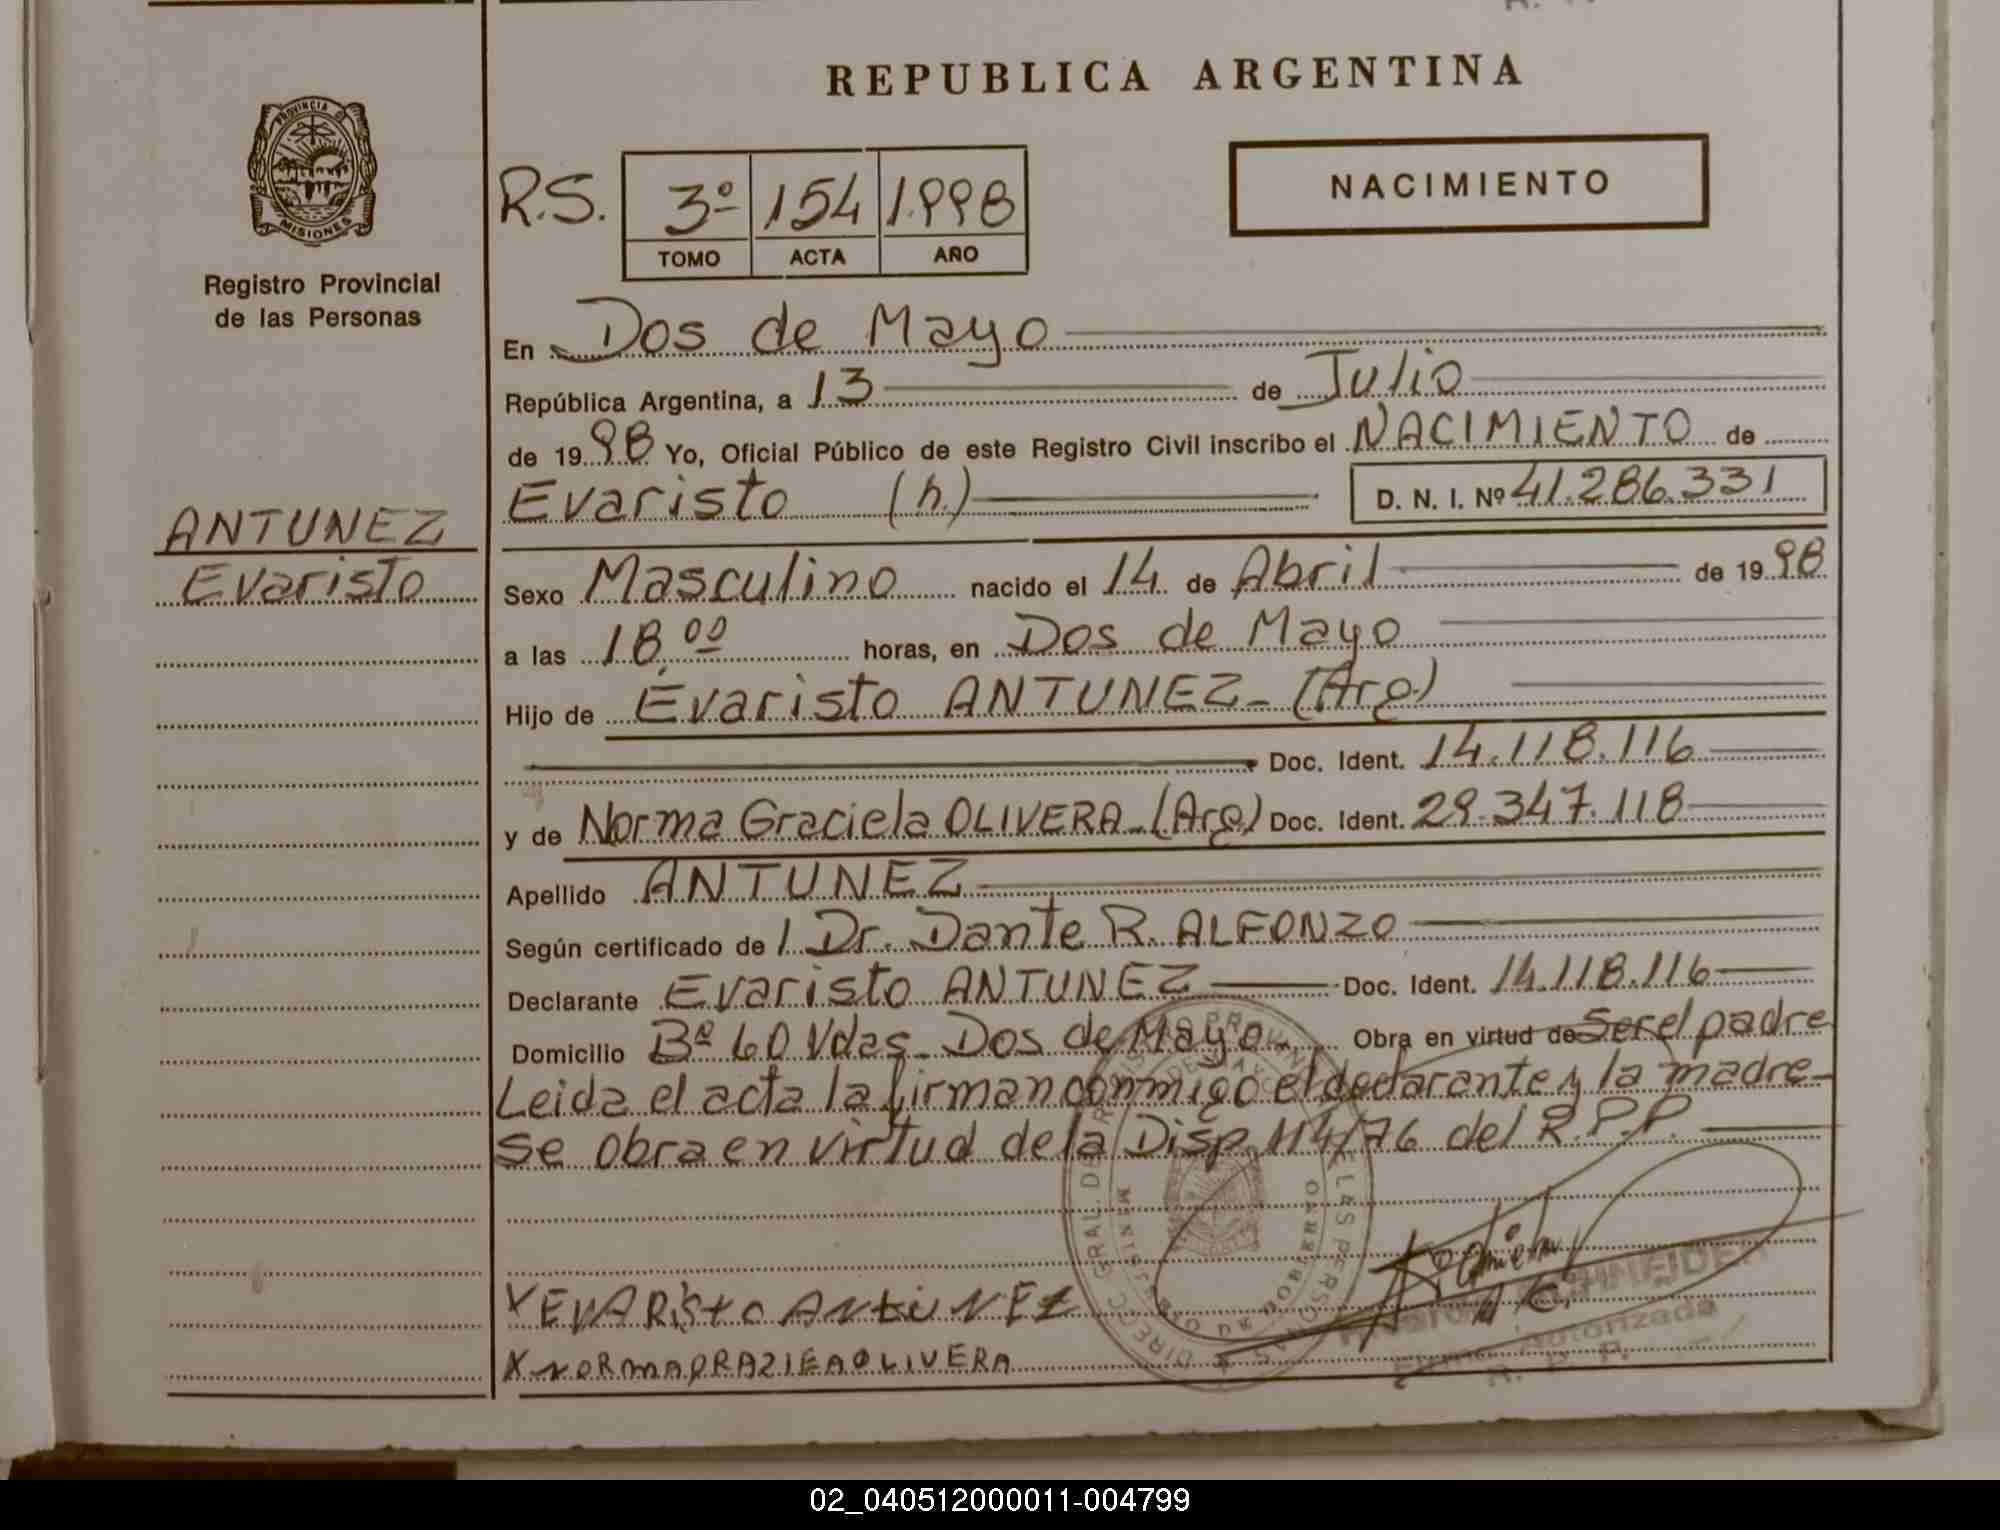 REPUBLICA ARGENTINA
PROVINCIA DE
MISIONES
Registro Provincial
de las Personas
NACIMIENTO
R.S. 3º 154 1.998
TOMO ACTA AÑO
En Dos de Mayo
República Argentina, a 13 de Julio
de 19 98 Yo, Oficial Público de este Registro Civil inscribo el NACIMIENTO de
Evaristo (h.) D. N. I. Nº 41.286.331
ANTUNEZ
Evaristo
Sexo Masculino nacido el 14 de Abril de 19 98
a las 18,00 horas, en Dos de Mayo
Hijo de Evaristo ANTUNEZ - (Arg.)
Doc. Ident. 14.118.116
y de Norma Graciela OLIVERA - (Arg.) Doc. Ident. 29.347.118
Apellido ANTUNEZ
Según certificado de / Dr. Dante R. ALFONZO
Declarante Evaristo ANTUNEZ Doc. Ident. 14.118.116
Domicilio Bº 60 Vdas - Dos de Mayo - Obra en virtud de Ser el padre
Leida el acta la firman conmigo el declarante y la madre -
Se obra en virtud de la Disp. 114/76 del R.P.P.
X EVARISTO ANTUNEZ
X NORMA GRAZIEA OLIVERA
SCHNEIDER
Autorizada
R. P. P.
02_040512000011-004799